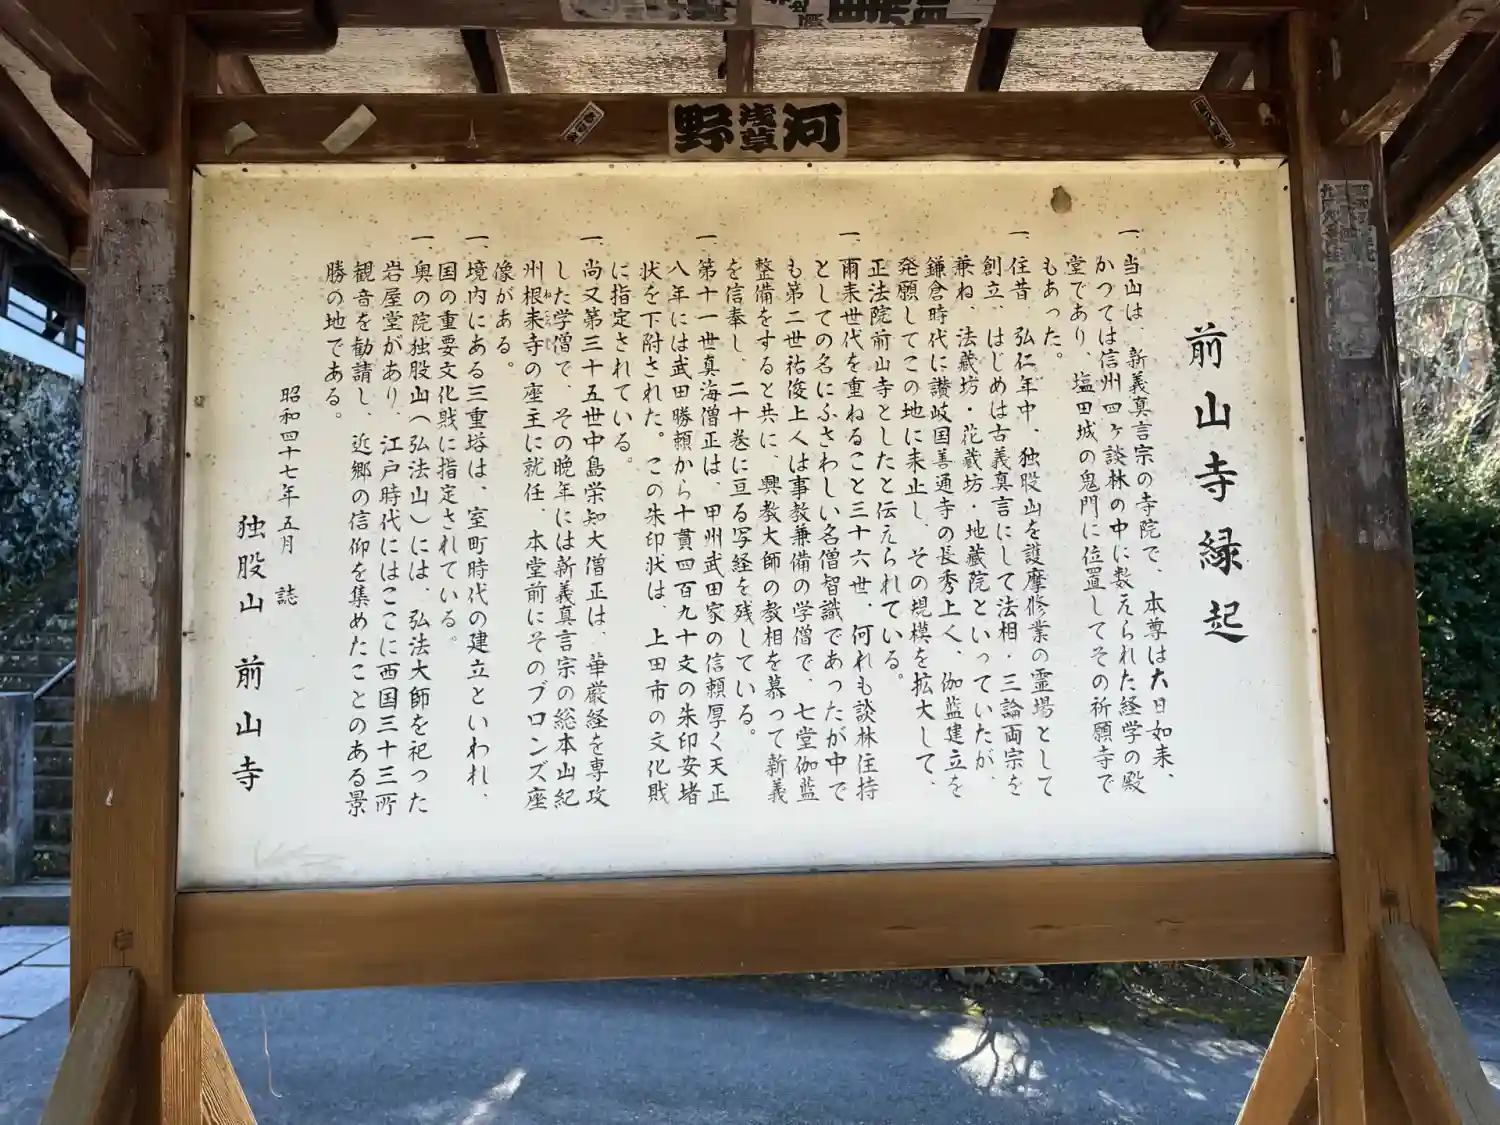 河
浅草
野
前山寺縁起
一、当山は、新義真言宗の寺院で、本尊は大日如来、
かつては信州四ヶ談林の中に数えられた経学の殿
堂であり、塩田城の鬼門に位置してその祈願寺で
もあった。
一、住昔、弘仁年中、独股山を護摩修業の霊場として
創立、はじめは古義真言にして法相・三論両宗を
兼ね、法蔵坊・花蔵坊・地蔵院といっていたが、
鎌倉時代に讃岐国善通寺の長秀上人、伽藍建立を
発願してこの地に来止し、その規模を拡大して、
正法院前山寺としたと伝えられている。
一、爾来世代を重ねること三十六世、何れも談林住持
としての名にふさわしい名僧智識であったが中で
も第二世祐俊上人は事教兼備の学僧で、七堂伽藍
整備をすると共に、興教大師の教相を慕って新義
を信奉し、二十巻に亘る写経を残している。
一、第十一世真海僧正は、甲州武田家の信頼厚く天正
八年には武田勝頼から十貫四百九十文の朱印安堵
状を下附された。この朱印状は、上田市の文化財
に指定されている。
一、尚又第三十五世中島栄知大僧正は、華厳経を専攻
した学僧で、その晩年には新義真言宗の総本山紀
州根来寺の座主に就任、本堂前にそのブロンズ座
像がある。
一、境内にある三重塔は、室町時代の建立といわれ、
国の重要文化財に指定されている。
一、奥の院独股山(弘法山)には、弘法大師を祀った
岩屋堂があり、江戸時代にはここに西国三十三所
観音を勧請し、近郷の信仰を集めたことのある景
勝の地である。
昭和四十七年五月 誌
独股山 前山寺